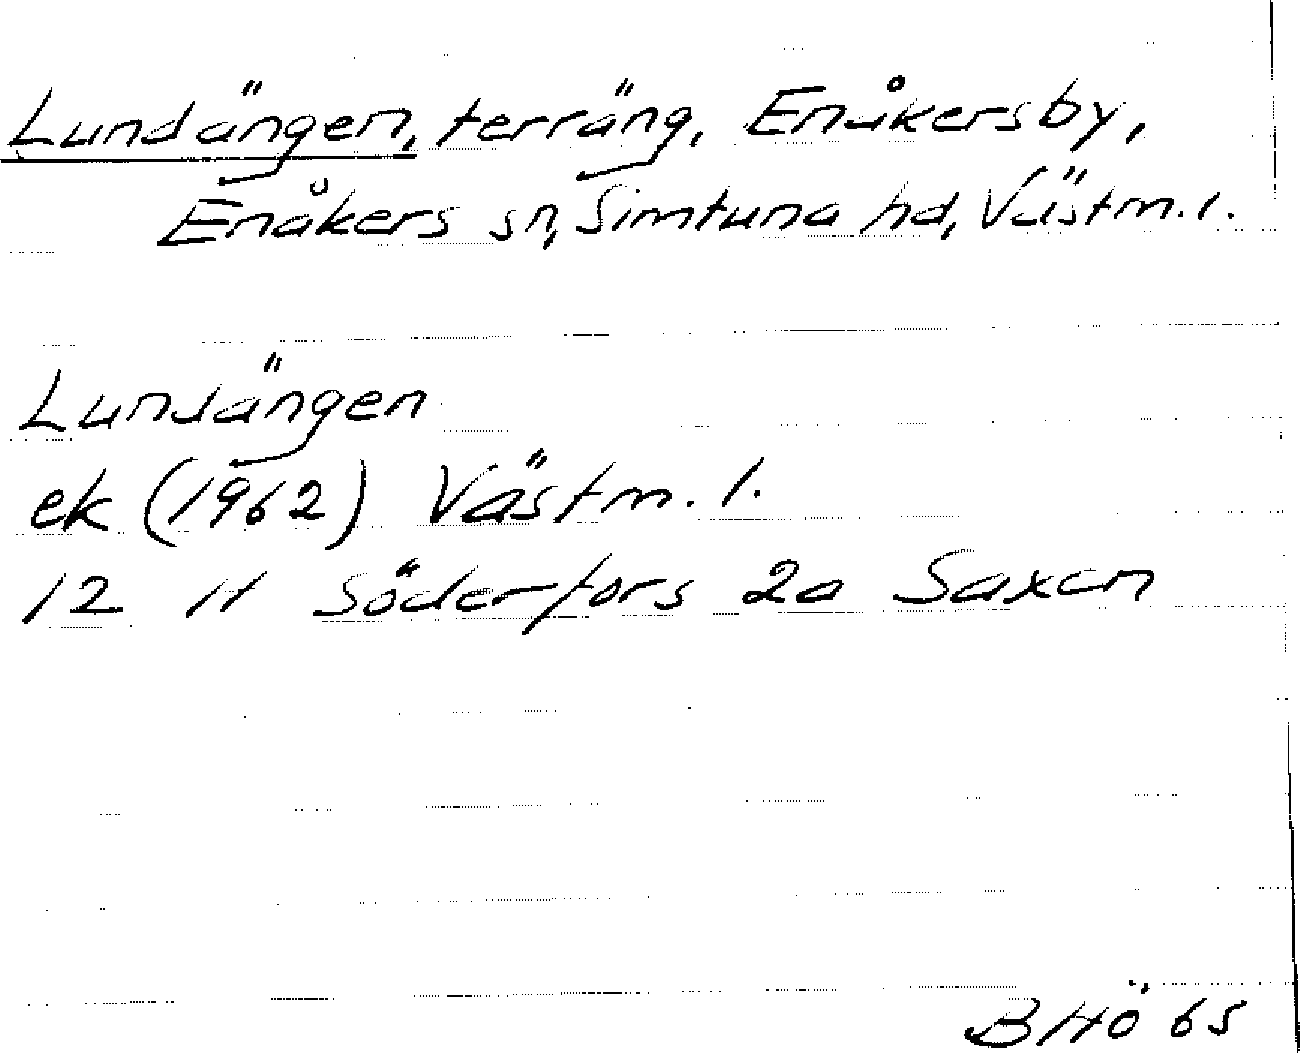 Lundängen, terräng, Enåkersby,
Enåkers sn, Simtuna hd, Västm. l.
Lundängen
ek (1962) Västm. l.
12 H Söderfors 2a Saxen
BHÖ 65